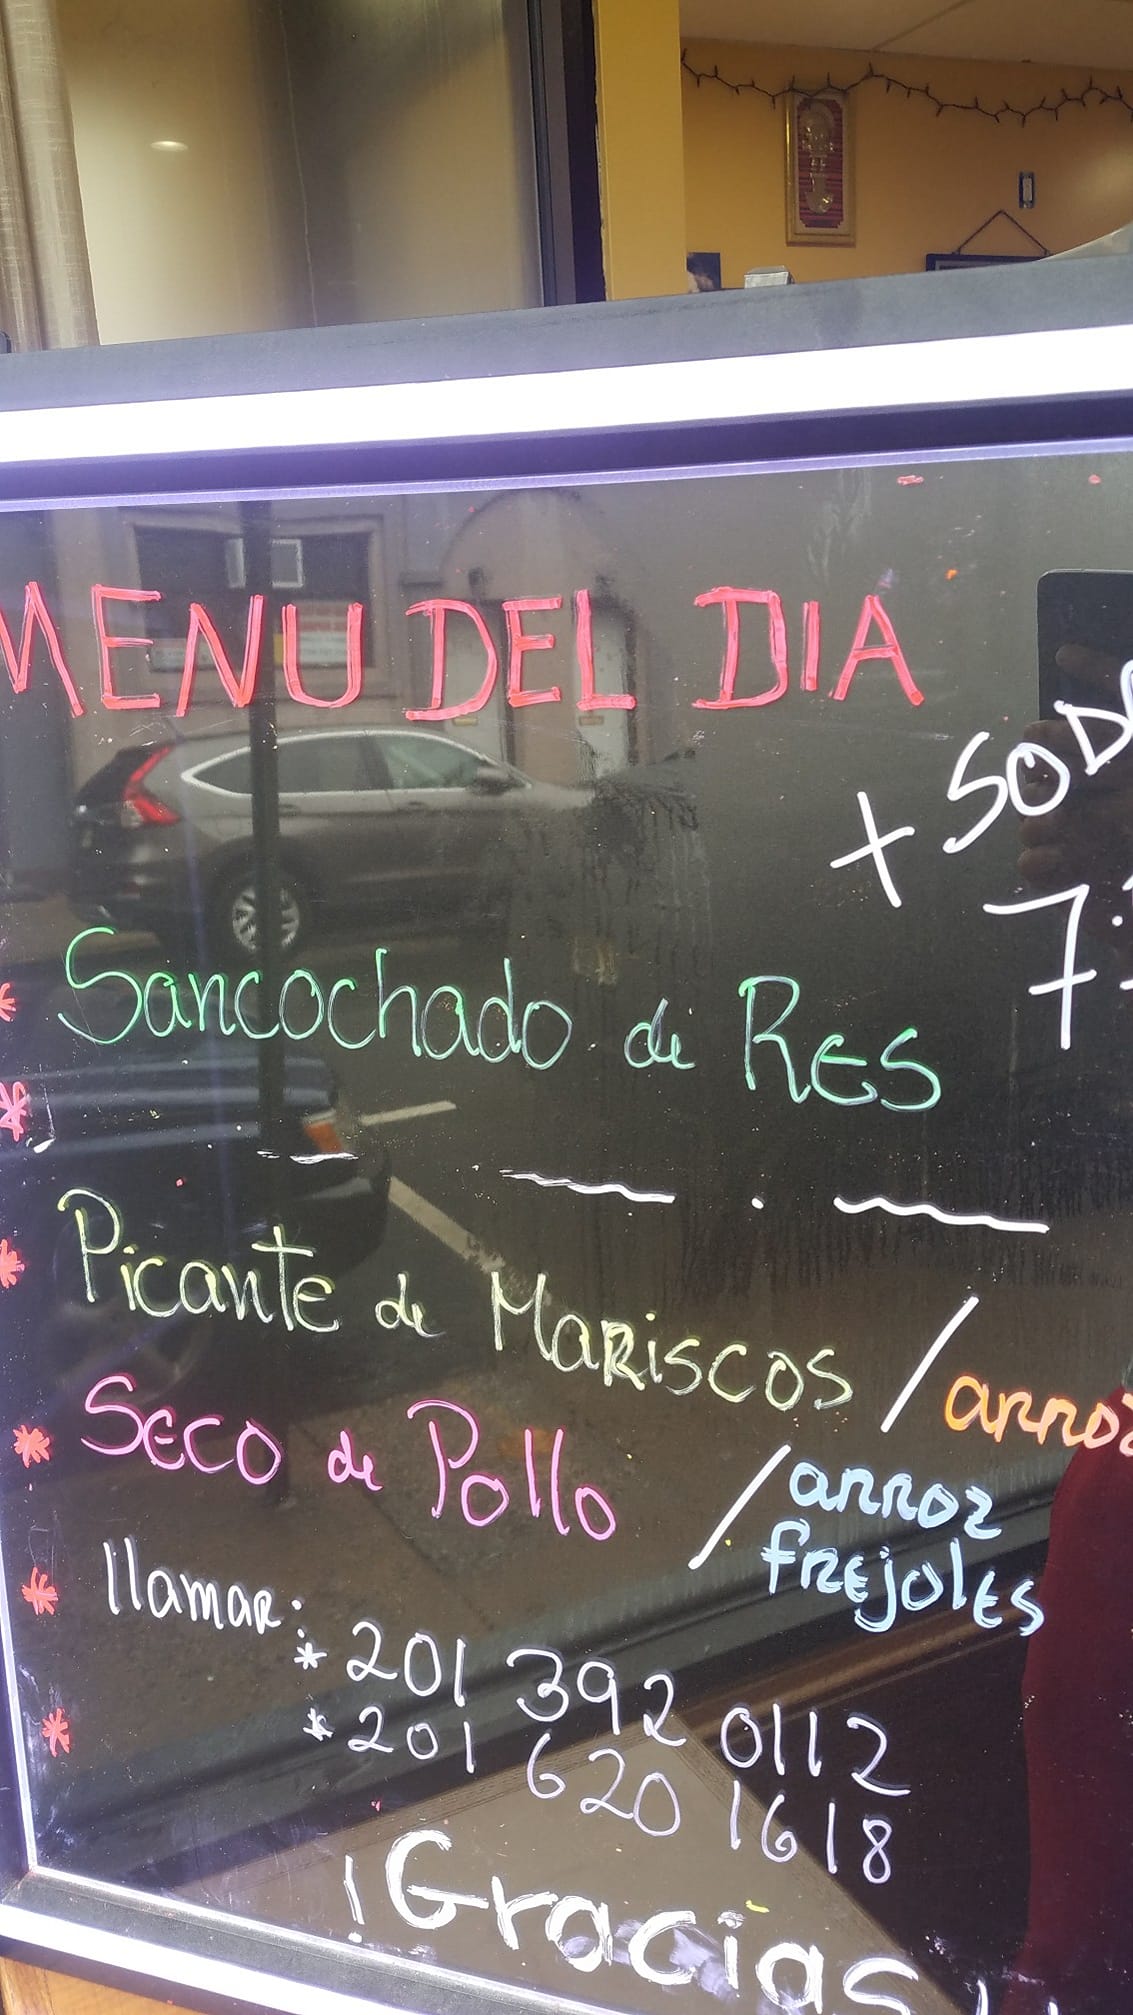 MENU DEL DIA
+ SODA
* Sancochado de Res
*
* Picante de Mariscos / arroz
* Seco de Pollo / arroz
frejoles
* llamar:
* 201 392 0112
* * 201 620 1618
¡Gracias!